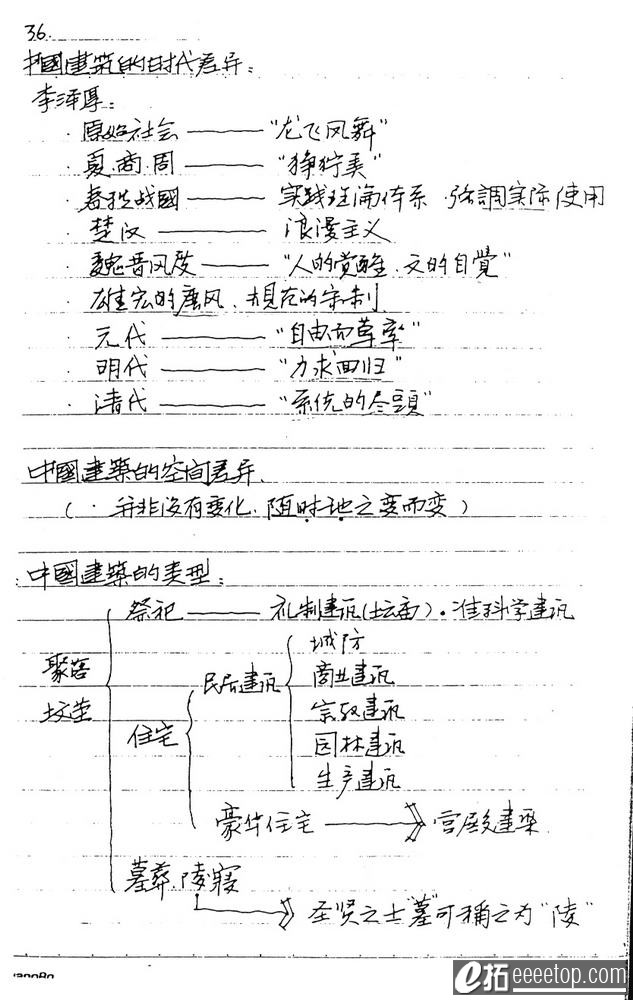 36.
中國建筑的时代差异：
李泽厚：
· 原始社会 —— "龙飞凤舞"
· 夏.商.周 —— "狰狞美"
· 春秋战國 —— 实践理论体系·强調实际使用
· 楚汉 —— 浪漫主义
· 魏晋风度 —— "人的觉醒.文的自覺"
· 雄宏的唐风、规范的宋制
· 元代 —— "自由而草率"
· 明代 —— "力求回归"
· 清代 —— "系统的尽頭"
中國建築的空间差异.
(· 并非没有变化.随时地之变而变)
中國建築的类型：
祭祀 —— 礼制建筑(坛庙)·准科学建筑
聚落
住宅
民居建筑
城防
商业建筑
宗教建筑
园林建筑
生产建筑
豪华住宅 → 宫殿建築
墓葬.陵寝
→ 圣贤之士"墓"可稱之为"陵"
e拓eeeetop.com